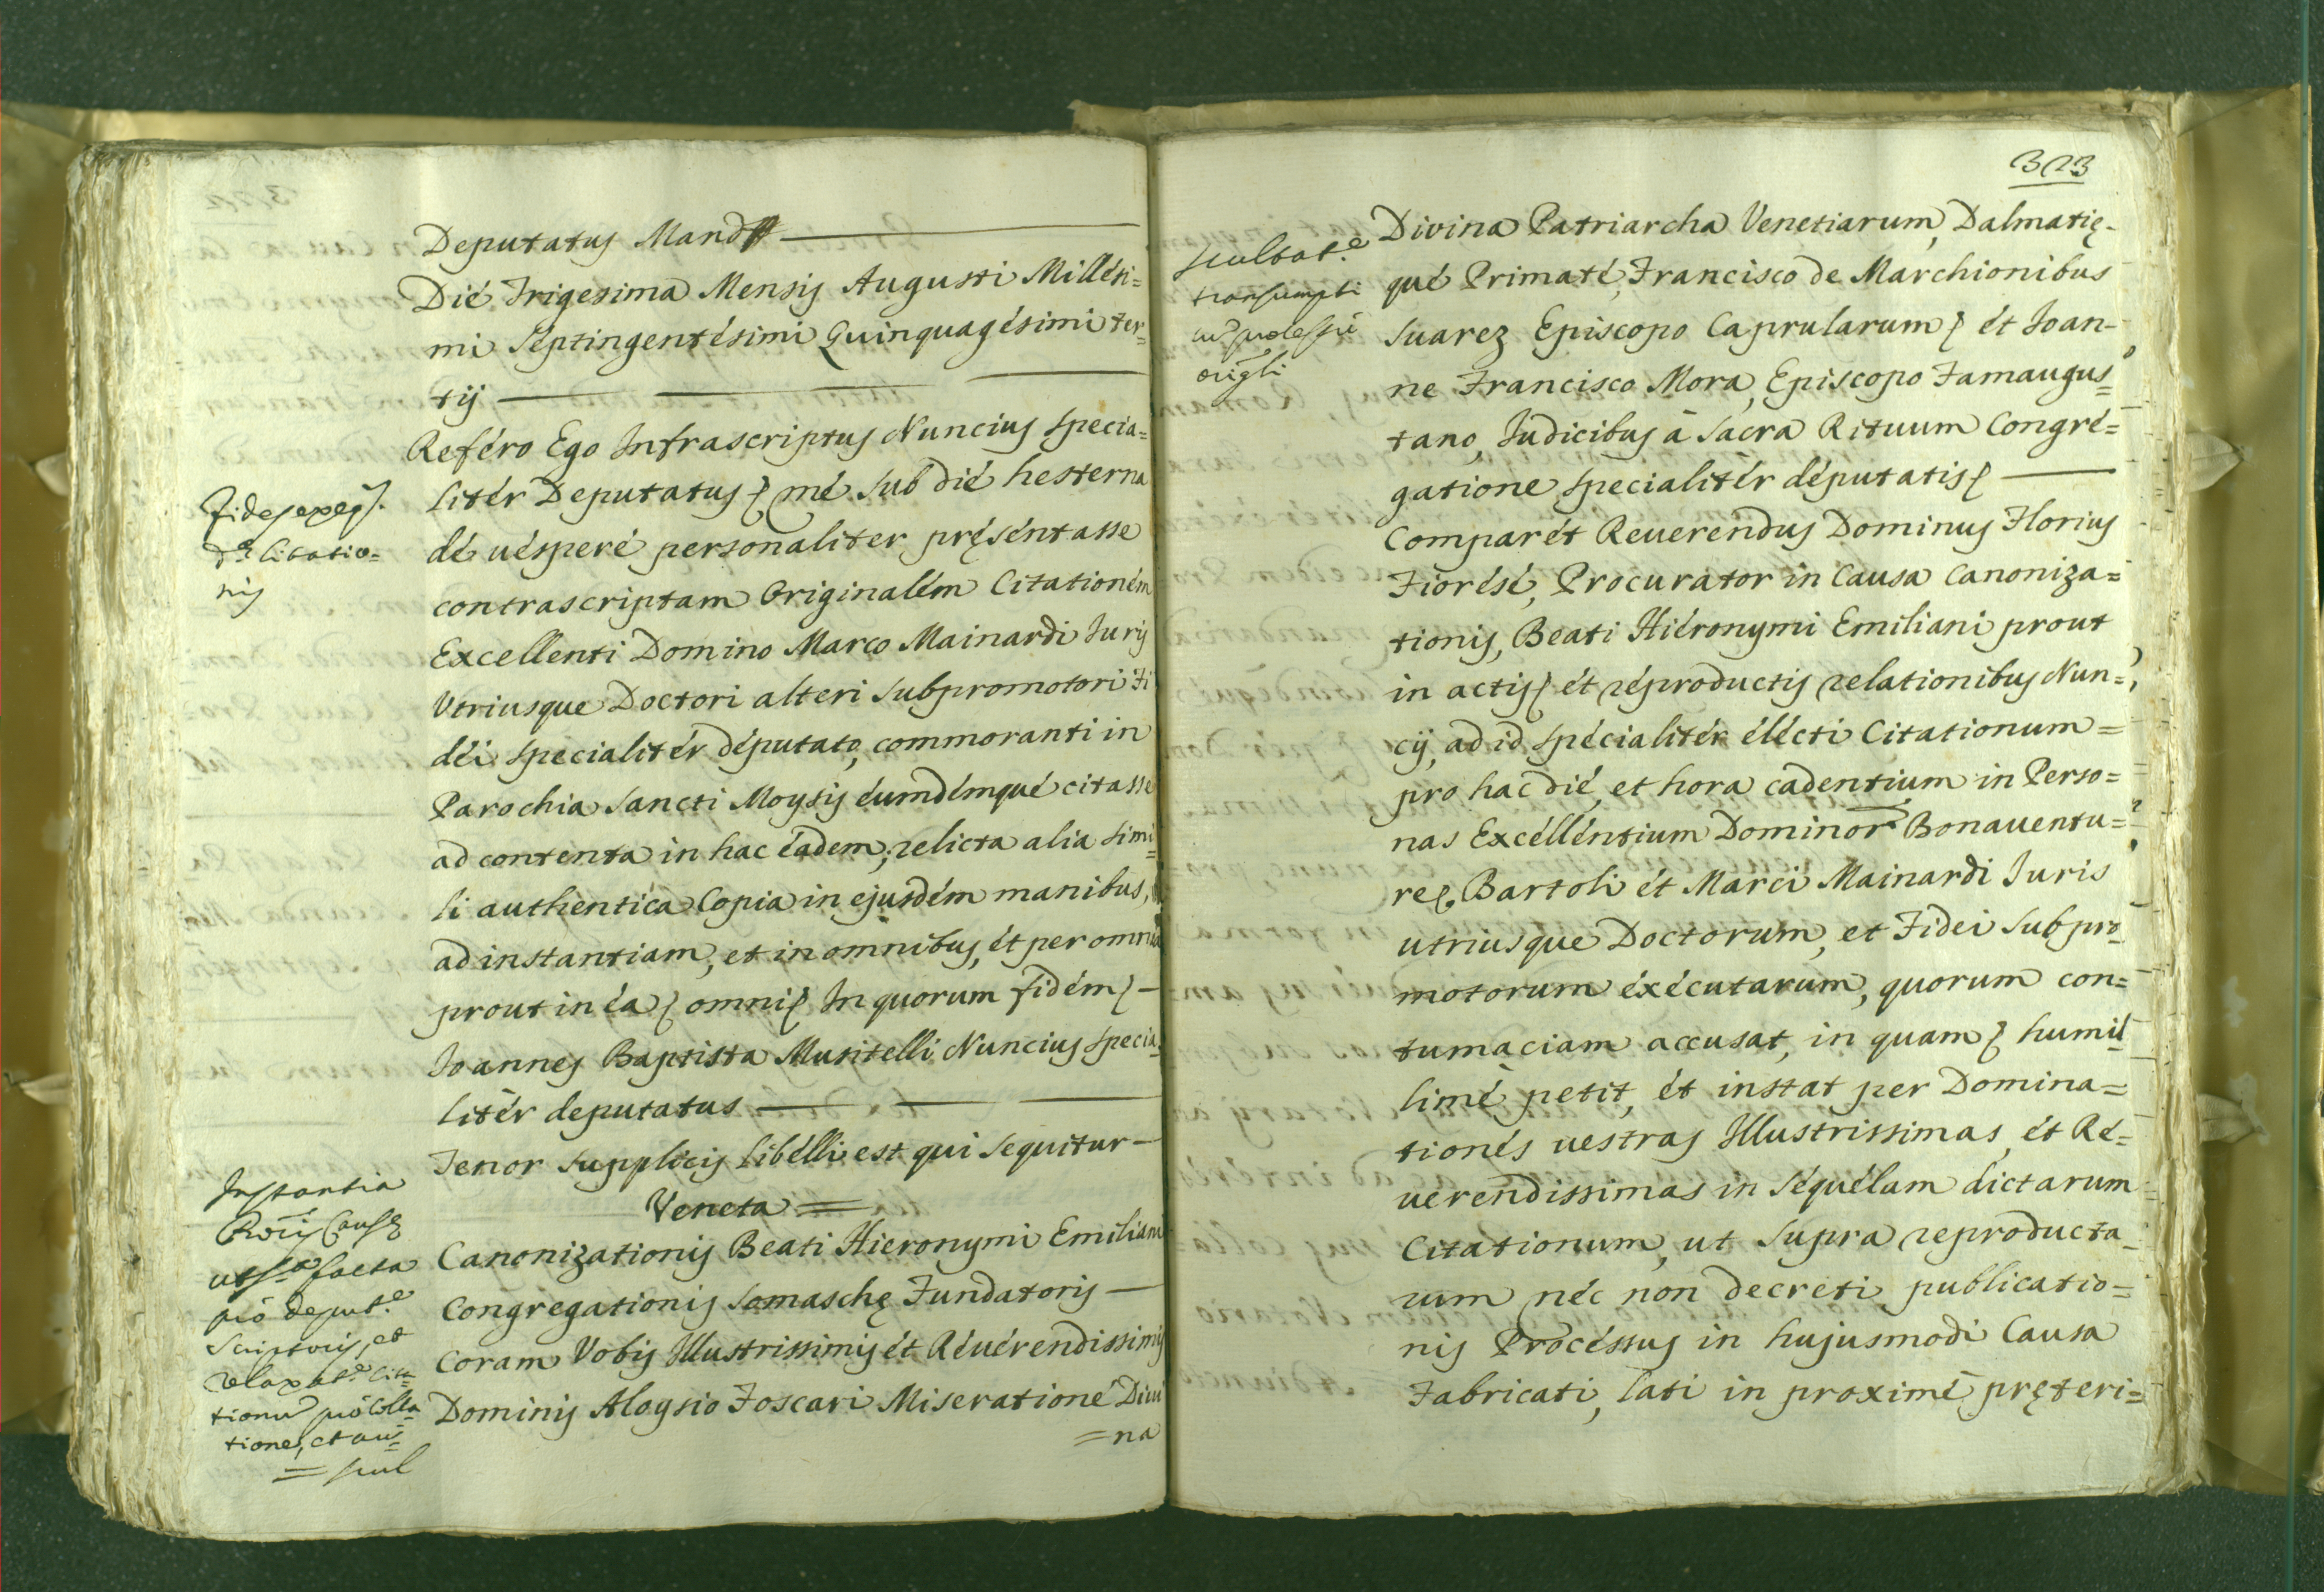 Deputatus Mand
Dié Trigesima Mensis Augusti Millési=
mi Séptingentésimi Quinquagésimi ter=
tij
Reféro Ego Infrascriptus Nuncius specia=
litér Deputatus mé sub dié hesterna
dé uésperé personaliter pręséntasse
contrascriptam Originalém Citationém
Excellenti Domino Marco Mainardi Juris
Vtriusque Doctori alteri Subpromotori Fi
déi specialitér députato, commoranti in
Parochia Sancti Moysis éumdémqué citasse
ad contenta in hac éadem, relicta alia simi=
li authentica Copia in ejusdém manibus,
ad instantiam, et in omnibus, ét per omnia
prout in éa omni In quorum fidém
Joannes Baptista Muritelli Nuncius specia=
litér deputatus
Tenor supplicis libélli est qui sequitur
Veneta =
Canonizationis Beati Hieronymi Emiliani
Congregationis Somaschę Fundatoris
Coram Vobis Illustrissimis ét Réuérendissimis
Dominis Aloysio Foscari Miseratione Diui
=na
Fides exeq.
dę Citatio=
nis
Instantia
Causę
facta
pro deput.e
Scriptoris, et
relaxat.e Cita
tionu pro Colla
tione, et au=
=scul
323
scultat.e
transumpti
cu processu
origli
Divina Patriarcha Venetiarum, Dalmatię-
qué Primaté, Francisco de Marchionibus
Suarez Episcopo Caprularum ét Joan-
ne Francisco Mora, Episcopo Famaugus=
tano, Judicibus à Sacra Rituum Congré=
gatione specialitér députatis
Comparét Reuerendus Dominus Florius
Fiorésé, Procurator in Causa Canoniza=
tionis, Beati Hiéronymi Emiliani prout
in actis ét réproductis relationibus Nun=
cij, ad id spécialitér élécti Citationum=
pro hac dié, et hora cadentium in Perso=
nas Excéllentium Dominor Bonauentu=
rę Bartoli ét Marci Mainardi Juris
utriusque Doctorum, et Fidei Subpro
motorum éxécutarum, quorum con=
tumaciam accusat, in quam humil
limé petit, ét instat per Domina=
tionés uestras Illustrissimas, ét Ré=
uerendissimas in séquélam dictarum
Citationum, ut supra reproducta
rum néc non decreti publicatio=
nis Procéssus in hujusmodi Causa
Fabricati, lati in proximé pręteri=